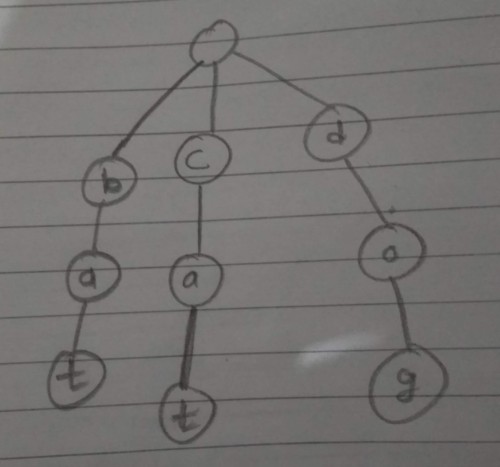 b c d
a a o
t t g